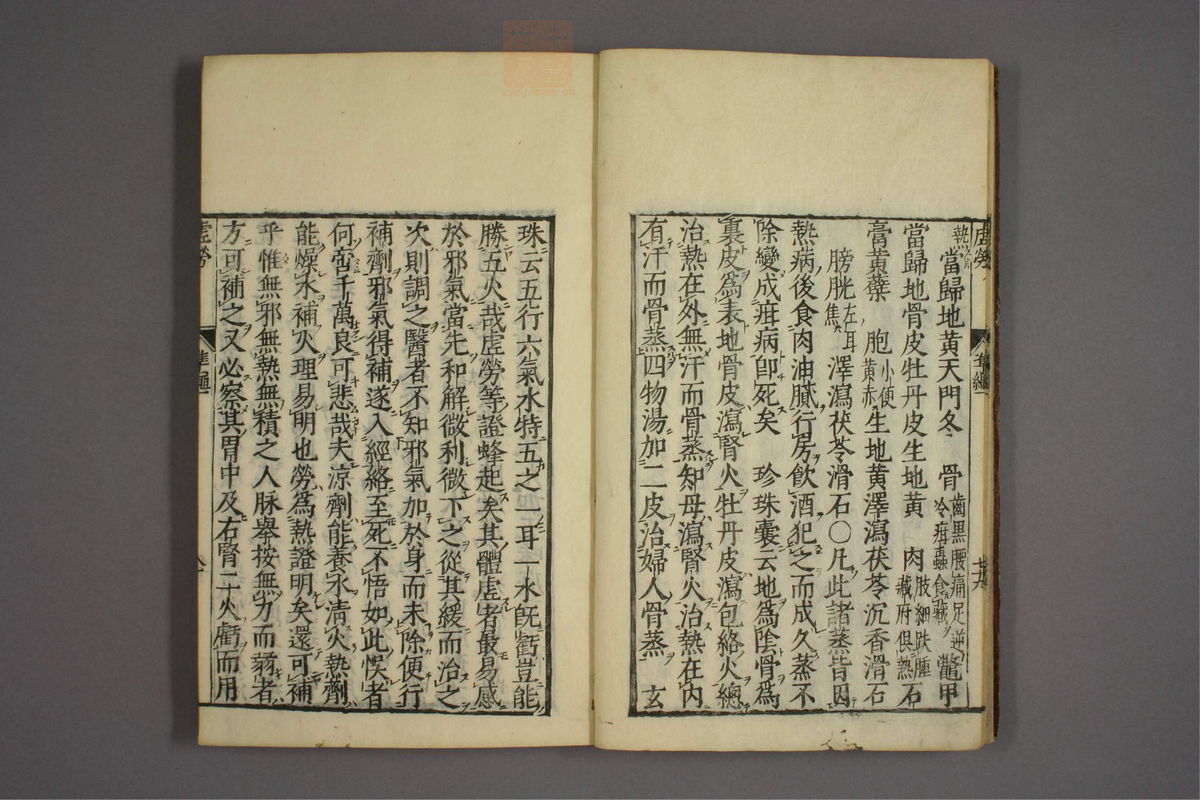 虛勞 準繩 十六
熱 當歸地黃天門冬 骨 齒黑腰痛足逆 冷疳蟲食藏 鼈甲
當歸地骨皮牡丹皮生地黃 肉 肢細趺腫 藏府俱熱 石
膏黃蘗 胞 小便 黃赤 生地黃澤瀉茯苓沉香滑石
膀胱 左耳 焦 澤瀉茯苓滑石〇凡此諸蒸皆因
熱病後食肉油膩行房飲酒犯之而成久蒸不
除變成疳病卽死矣 珍珠囊云地爲陰骨爲
裏皮爲表地骨皮瀉腎火牡丹皮瀉包絡火總
治熱在外無汗而骨蒸知母瀉腎火治熱在內
有汗而骨蒸四物湯加二皮治婦人骨蒸 玄
珠云五行六氣水特五之一耳一水旣虧豈能
勝五火哉虛勞等證蜂起矣其體虛者最易感
於邪氣當先和解微利微下之從其緩而治之
次則調之醫者不知邪氣加於身而未除便行
補劑邪氣得補遂入經絡至死不悟如此悞者
何啻千萬良可悲哉夫涼劑能養水淸火熱劑
能燥水補火理易明也勞爲熱證明矣還可補
乎惟無邪無熱無積之人脉擧按無力而弱者
方可補之又必察其胃中及右腎二火虧而用
虛勞 準繩